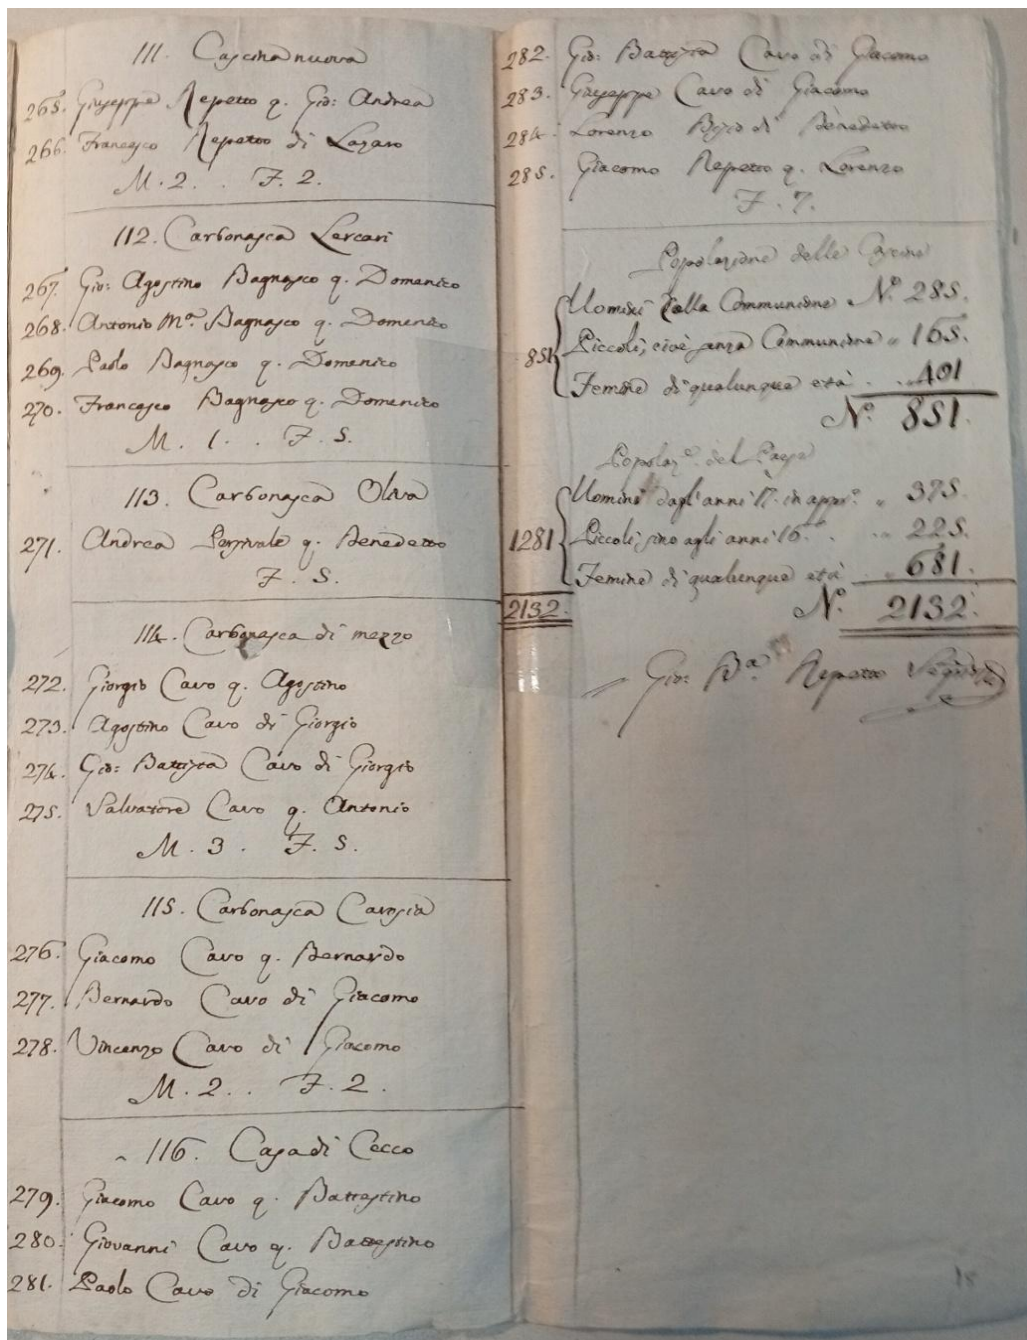 111. Cascina nuova
265. Giuseppe Repetto q. Gio: Andrea
266. Francesco Repetto di Lazaro
M. 2. . F. 2.
112. Carbonasca Lercari
267. Gio: Agostino Bagnasco q. Domenico
268. Antonio Mª. Bagnasco q. Domenico
269. Paolo Bagnasco q. Domenico
270. Francesco Bagnasco q. Domenico
M. 1. . F. 5.
113. Carbonasca Oliva
271. Andrea q. Benedetto
F. 5.
114. Carbonasca di mezzo
272. Giorgio Cavo q. Agostino
273. Agostino Cavo di Giorgio
274. Gio: Battista Cavo di Giorgio
275. Salvatore Cavo q. Antonio
M. 3. F. 5.
115. Carbonasca Cavosia
276. Giacomo Cavo q. Bernardo
277. Bernardo Cavo di Giacomo
278. Vincenzo Cavo di Giacomo
M. 2. . F. 2.
116. Casa di Cecco
279. Giacomo Cavo q. Battestino
280. Giovanni Cavo q. Battestino
281. Paolo Cavo di Giacomo
282. Gio: Battista Cavo di Giacomo
283. Giuseppe Cavo di Giacomo
284. Lorenzo Bisio di Benedetto
285. Giacomo Repetto q. Lorenzo
F. 7.
Popolazione delle Cascine
Uomini dalla Communione Nº. 285.
851 Piccoli, cioè senza Communione " 165.
Femine di qualunque età . . " 401
Nº. 851.
Popolazᵉ. del Paese
Uomini dagl'anni 17. in apprº. " 375.
1281 Piccoli sino agli anni 16. . . " 225.
Femine di qualunque età " 681.
2132. Nº. 2132.
Gio: Bª. Repetto Segrio
18